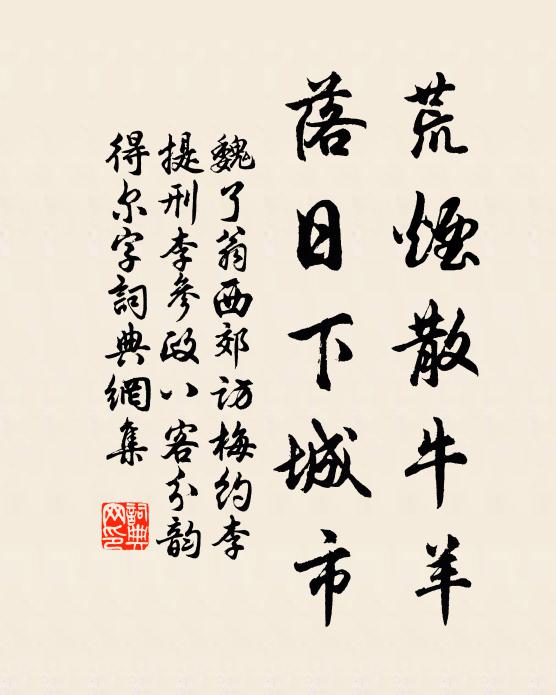 荒煙散牛羊
落日下城市
魏了翁西郊訪梅約李
提刑李參政八客分韵
得尔字詞典網集
詞典网印